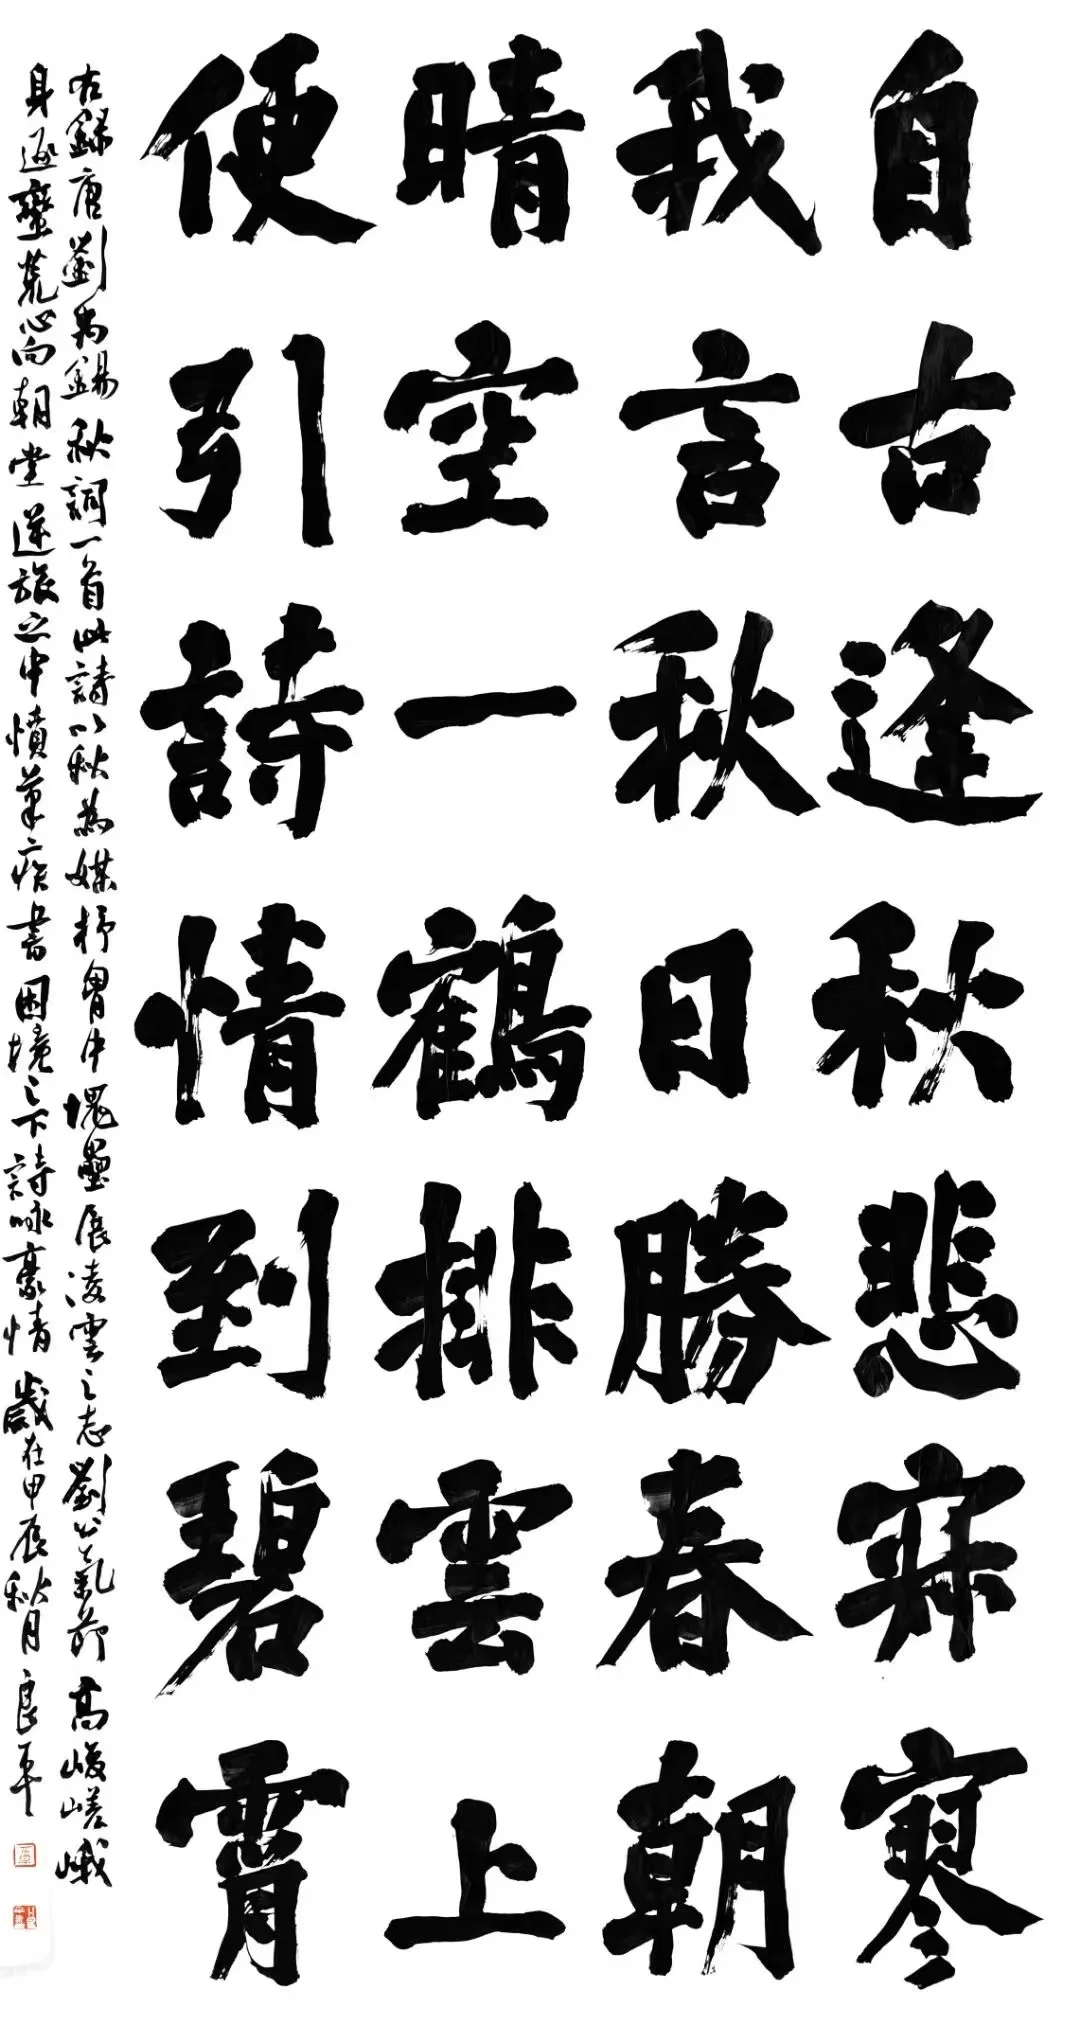 自古逢秋悲寂寥
我言秋日勝春朝
晴空一鶴排雲上
便引詩情到碧霄
右錄唐劉禹錫秋詞一首此詩以秋為媒抒胷中塊壘展凌雲之志劉公氣節高峻嵯峨
身逐蠻荒心向朝堂逆旅之中憤筆疾書困境之下詩咏豪情歲在甲辰秋月良平